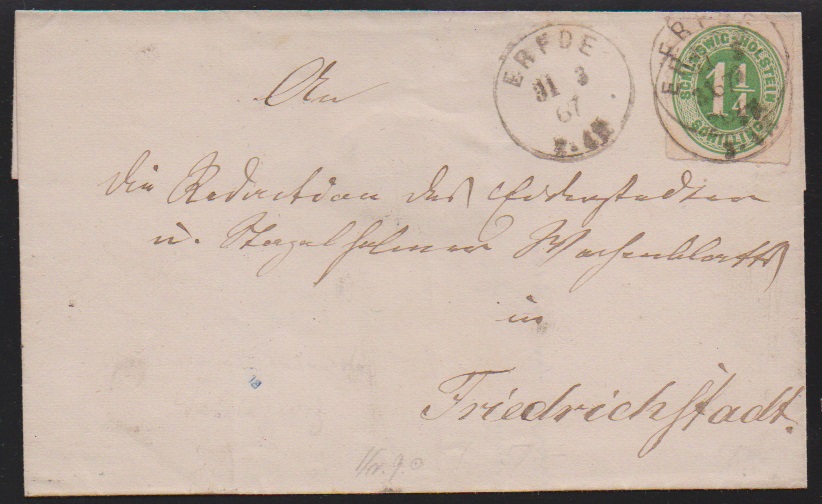 ERFDE
31 3
67
SCHLESWIG-HOLSTEIN
1 1/4
SCHILLING
An
die Redaction des Eiderstedter
u. Stapelholmer Wochenblatts
in
Friedrichstadt.